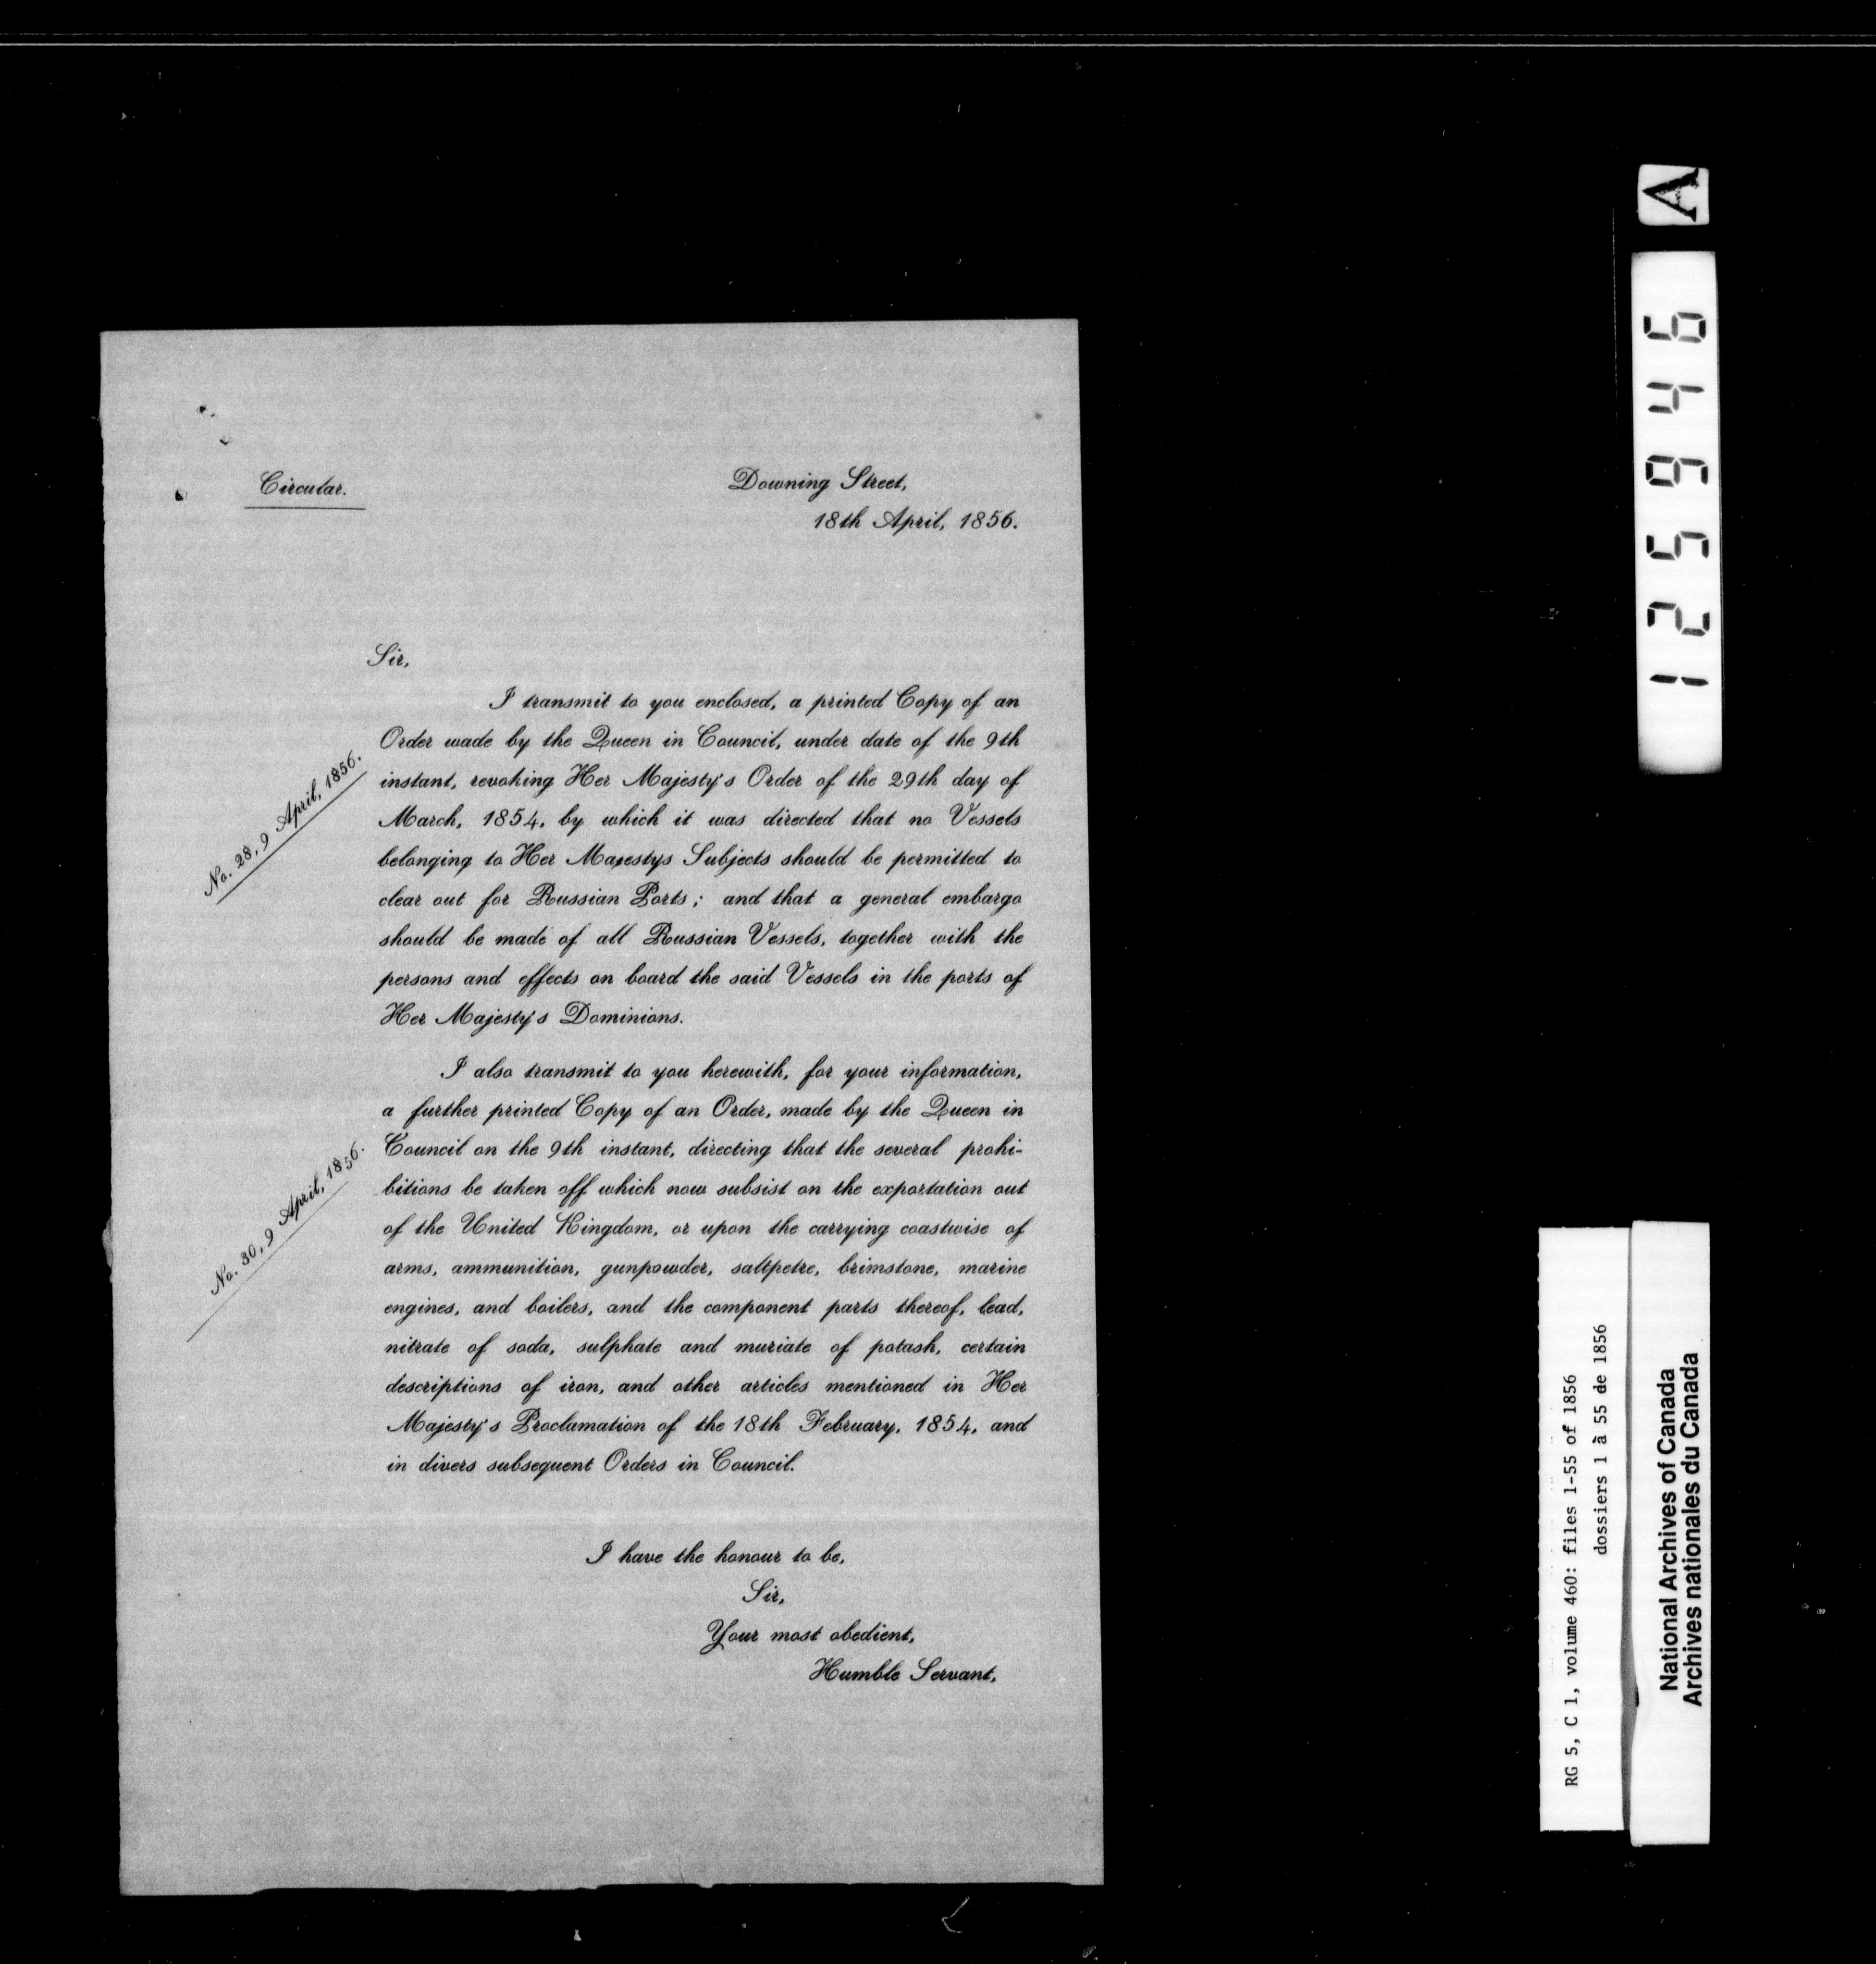 Circular.
Downing Street,
18th April, 1856.
Sir,
I transmit to you enclosed, a printed Copy of an
Order wade by the Queen in Council, under date of the 9th
instant, revoking Her Majesty's Order of the 29th day of
March, 1854, by which it was directed that no Vessels
belonging to Her Majestys Subjects should be permitted to
clear out for Russian Ports; and that a general embargo
should be made of all Russian Vessels, together with the
persons and effects on board the said Vessels in the ports of
Her Majesty's Dominions.
No. 28, 9 April, 1856.
I also transmit to you herewith, for your information,
a further printed Copy of an Order, made by the Queen in
Council on the 9th instant, directing that the several prohi-
bitions be taken off which now subsist on the exportation out
of the United Kingdom, or upon the carrying coastwise of
arms, ammunition, gunpowder, saltpetre, brimstone, marine
engines, and boilers, and the component parts thereof, lead,
nitrate of soda, sulphate and muriate of potash, certain
descriptions of iron, and other articles mentioned in Her
Majesty's Proclamation of the 18th February, 1854, and
in divers subsequent Orders in Council.
No. 30, 9 April, 1856.
I have the honour to be,
Sir,
Your most obedient,
Humble Servant,
A
125946
RG 5, C 1, volume 460: files 1-55 of 1856
dossiers 1 à 55 de 1856
National Archives of Canada
Archives nationales du Canada